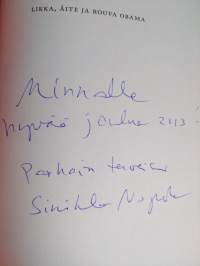 LIKKA, ÄITE JA ROUVA OBAMA
Minnalle
hyvää joulua 2013
Parhain terveisin
Sinikka